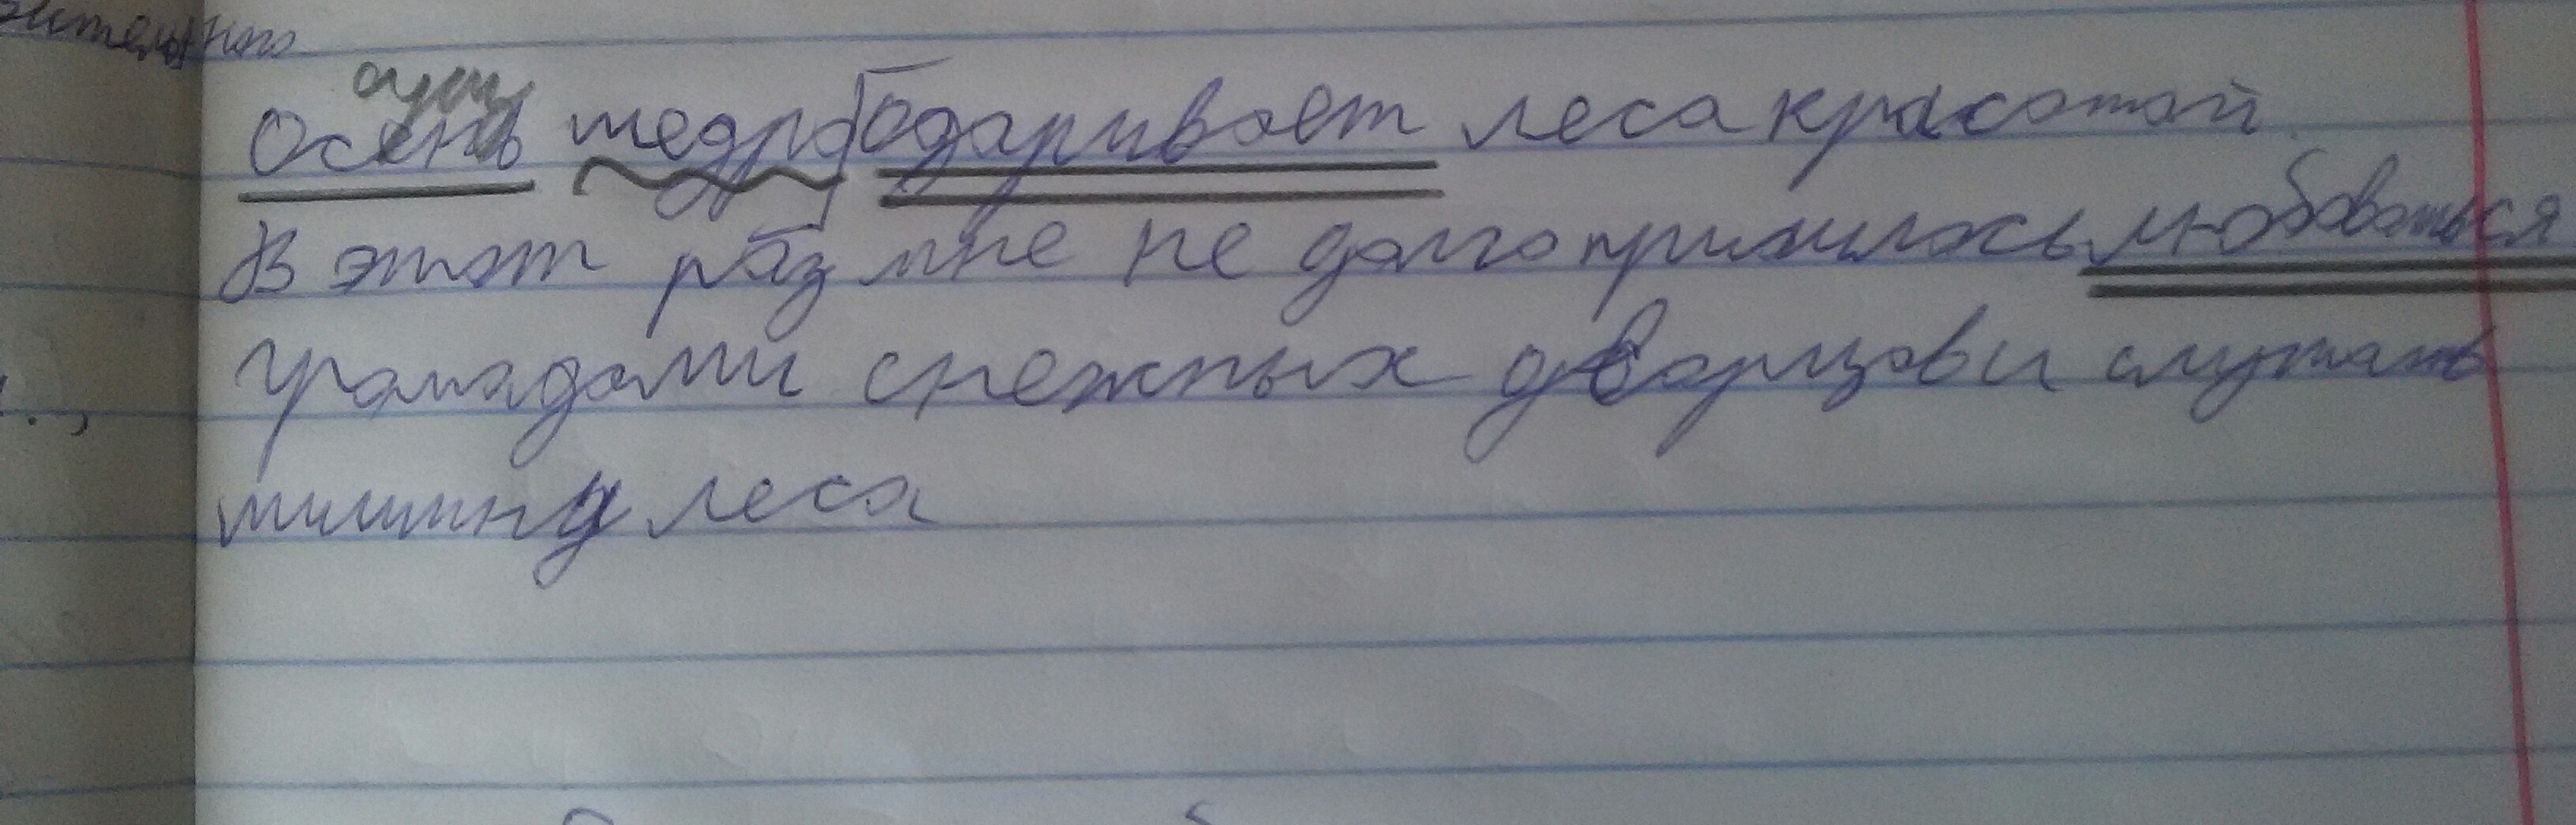 сущ
Осень щедро одаривает леса красотой.
В этот раз мне не долго пришлось любоваться
громадами снежных дворцов и слушать
тишину леса